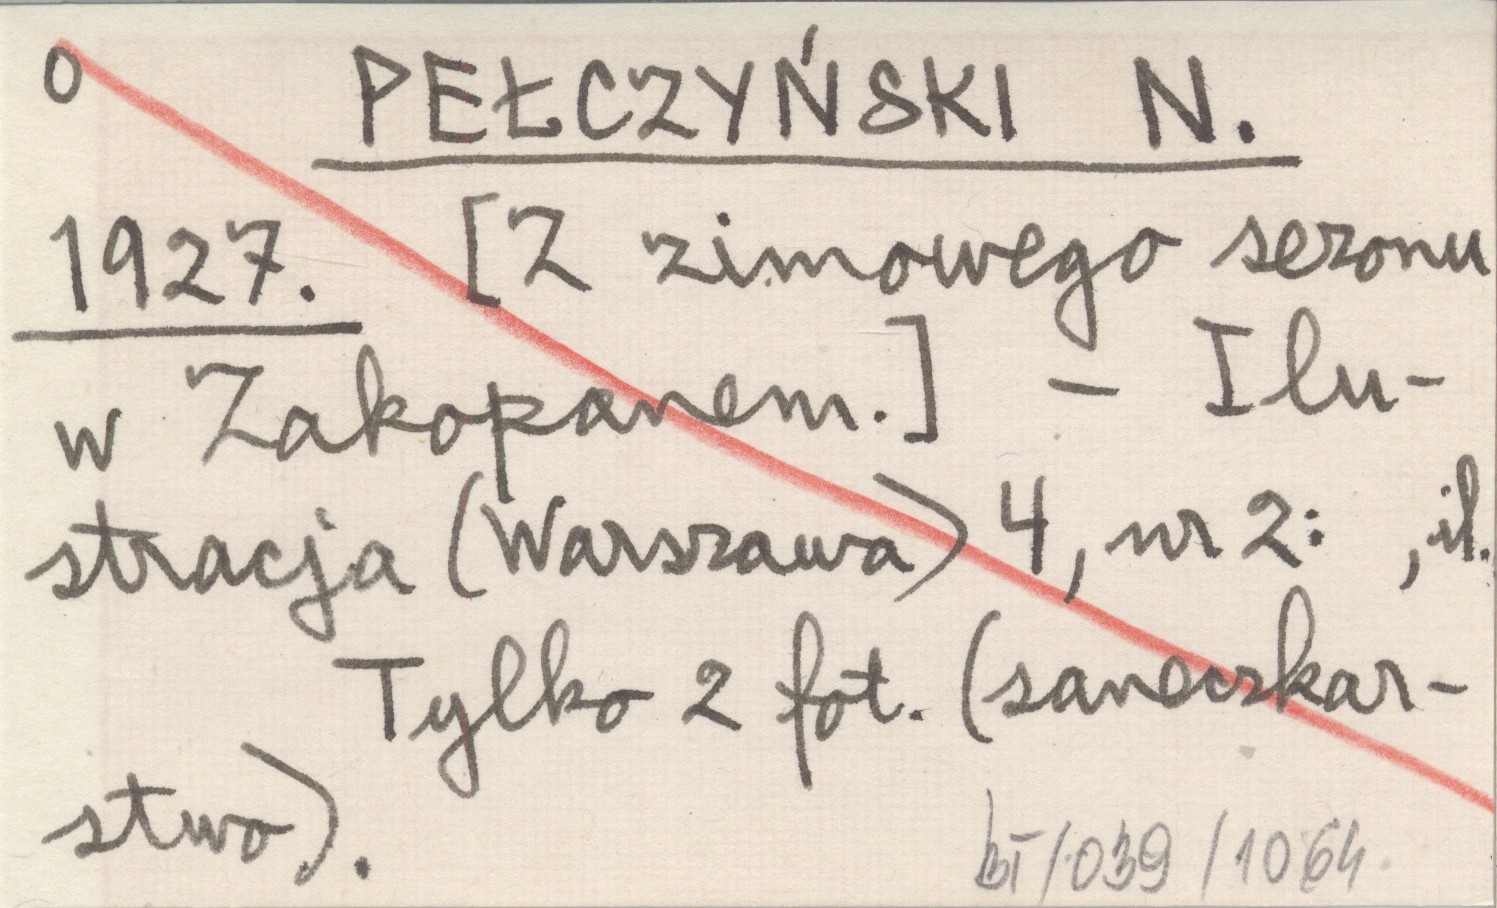 o PEŁCZYŃSKI N.
1927. [Z zimowego sezonu
w Zakopanem.] – Ilu-
stracja (Warszawa) 4, nr 2: , il.
Tylko 2 fot. (saneczkar-
stwo).
/039/1064.